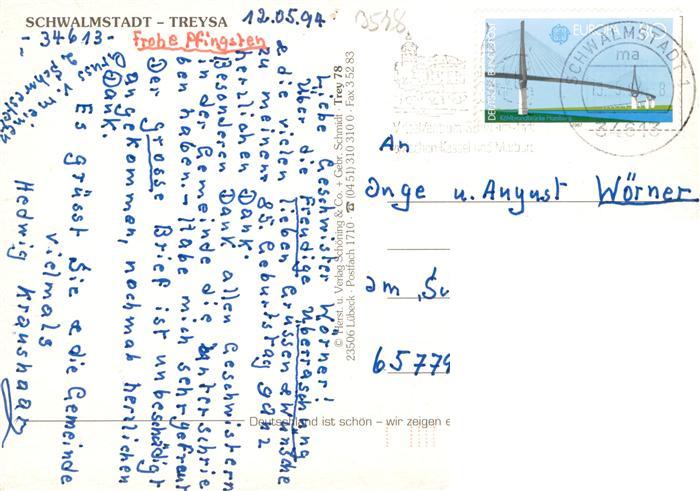 SCHWALMSTADT - TREYSA
12.05.94
-34613-
Frohe Pfingsten
Liebe Geschwister Wörner!
Über die freudige Überraschung
& die vielen lieben Grüssen & Wünsche
zu meinem 85. Geburtstag ganz
herzlichen Dank.
Besonderen Dank allen Geschwistern
in der Gemeinde die unterschrie
ben haben. - Habe mich sehr gefreut
Der grosse Brief ist unbeschädigt
angekommen, nochmal herzlichen
Dank.
Es grüsst Sie & die Gemeinde
vielmals
Hedwig Kraushaar
Gruss v. mei
© Herst. u. Verlag Schöning & Co. + Gebr. Schmidt · Trey 78
23506 Lübeck · Postfach 1710 · ☎ (04 51) 310 310 0 · Fax 3 52 83
DEUTSCHE BUNDESPOST
EUROPA
SCHWALMSTADT 1
ma
34613
An
Inge u. August Wörner
65779
Deutschland ist schön – wir zeigen e